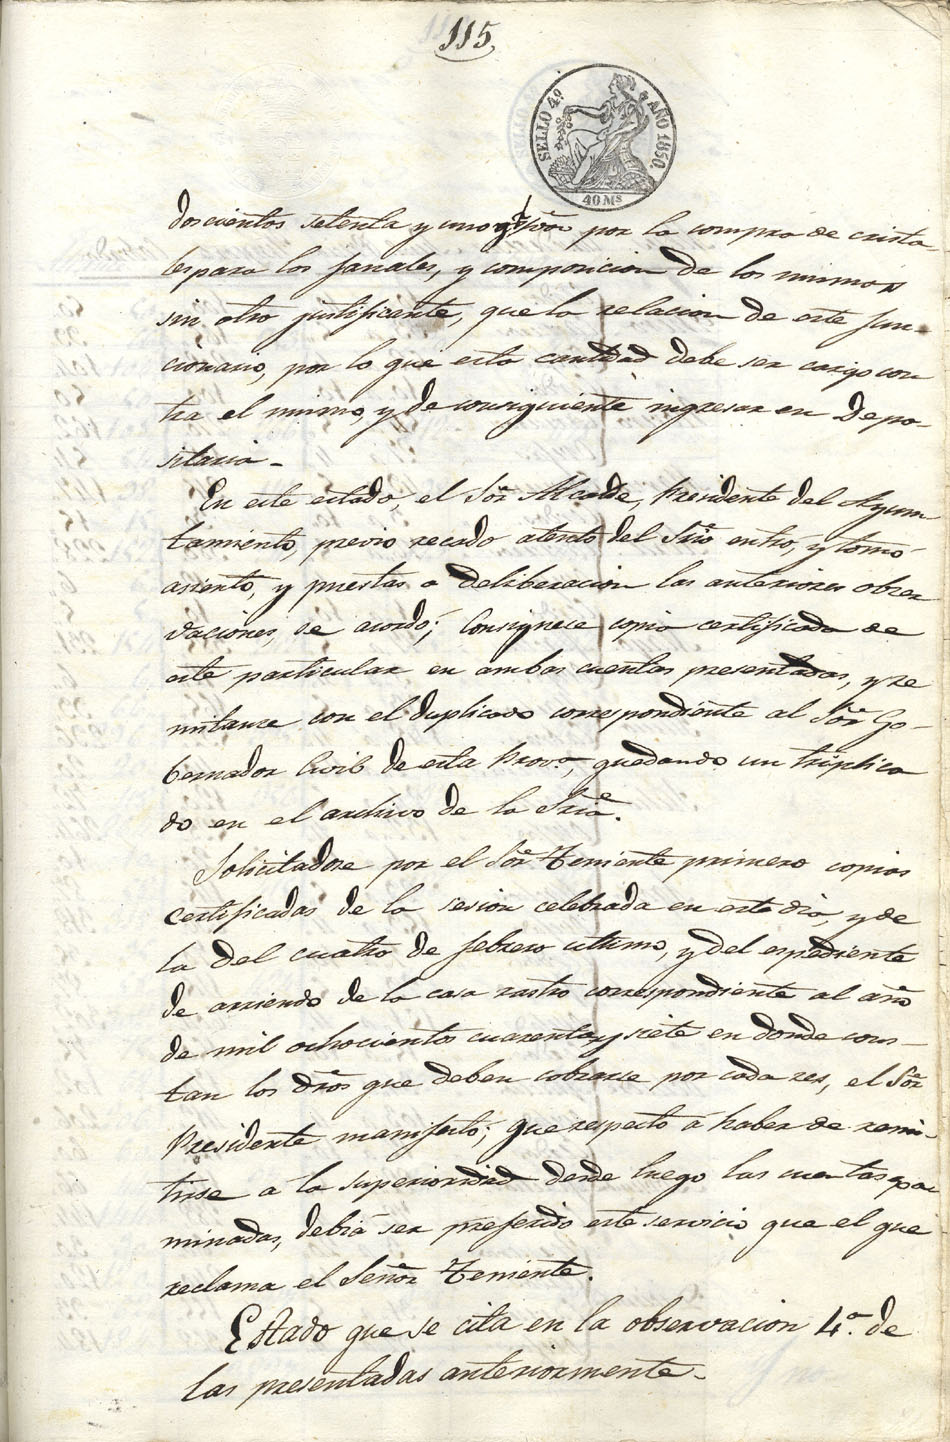 115
SELLO 4º AÑO 1850.
40 Ms
doscientos setenta y uno por la compra de crista
les para los faroles, y composicion de los mismos
sin otro justificante, que la relacion de este fun-
cionario, por lo que esta cantidad debe ser cargo con
tra el mismo, y de consiguiente ingresar en Depo-
sitaria.
En este estado, el Sor. Alcalde, Presidente del Ayun
tamiento, previo recado atento del Srio entró, y tomó
asiento, y puestas a deliberacion las anteriores obser
vaciones, se acordó; Consignese copia certificada de
este particular en ambas cuentas presentadas, y re
mitanse con el duplicado correspondiente al Sor. Go-
bernador Civil de esta Prova., quedando un triplica
do en el archivo de la Sria.
Solicitadose por el Sor. Teniente primero copias
certificadas de la sesion celebrada en este dia, y de
la del cuatro de febrero ultimo, y del espediente
de arriendo de la casa rastro correspondiente al año
de mil ochocientos cuarenta y siete en donde cons-
tan los dros que deben cobrarse por cada res, el Sor.
Presidente manifestó; que respecto á haber de remi-
tirse a la superioridad desde luego las cuentas exa
minadas, debia ser preferido este servicio que el que
reclama el Señor Teniente.
Estado que se cita en la observacion 4.a de
las presentadas anteriormente.